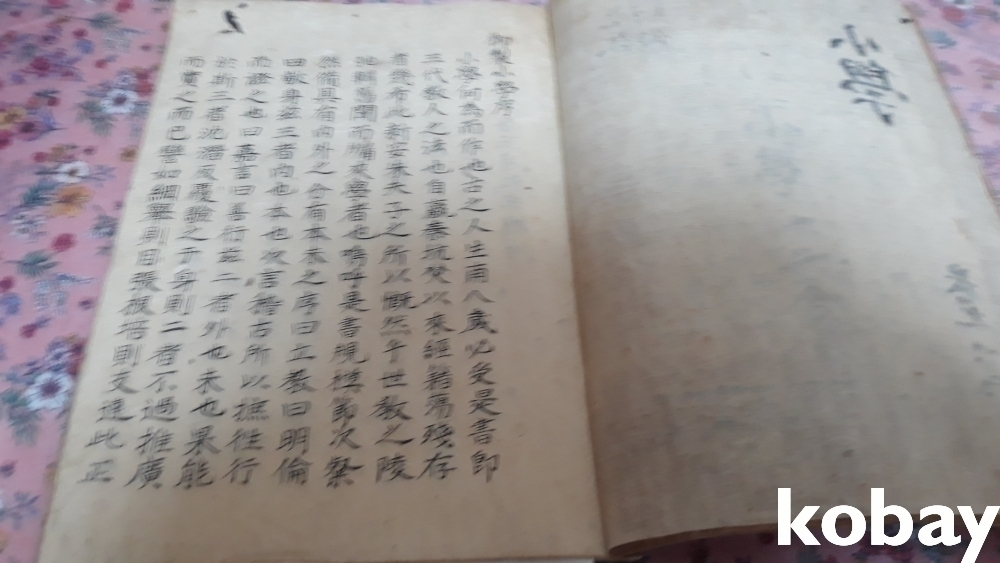 御製小學序
小學何爲而作也古之人生甫八歲必受是書卽
三代敎人之法也自嬴秦坑焚以來經籍蕩殘存
者幾希此新安朱夫子之所以慨然乎世敎之陵
弛輯舊聞而牖來學者也嗚呼是書規模節次粲
然備具有內外之分有本末之序曰立敎曰明倫
曰敬身玆三者內也本也次言稽古所以摭徃行
而證之也曰嘉言曰善行玆二者外也末也果能
於斯三者沈潛反覆驗之于身則二者不過推廣
而實之而已譬如綱擧則目張根培則支達此正
kobay